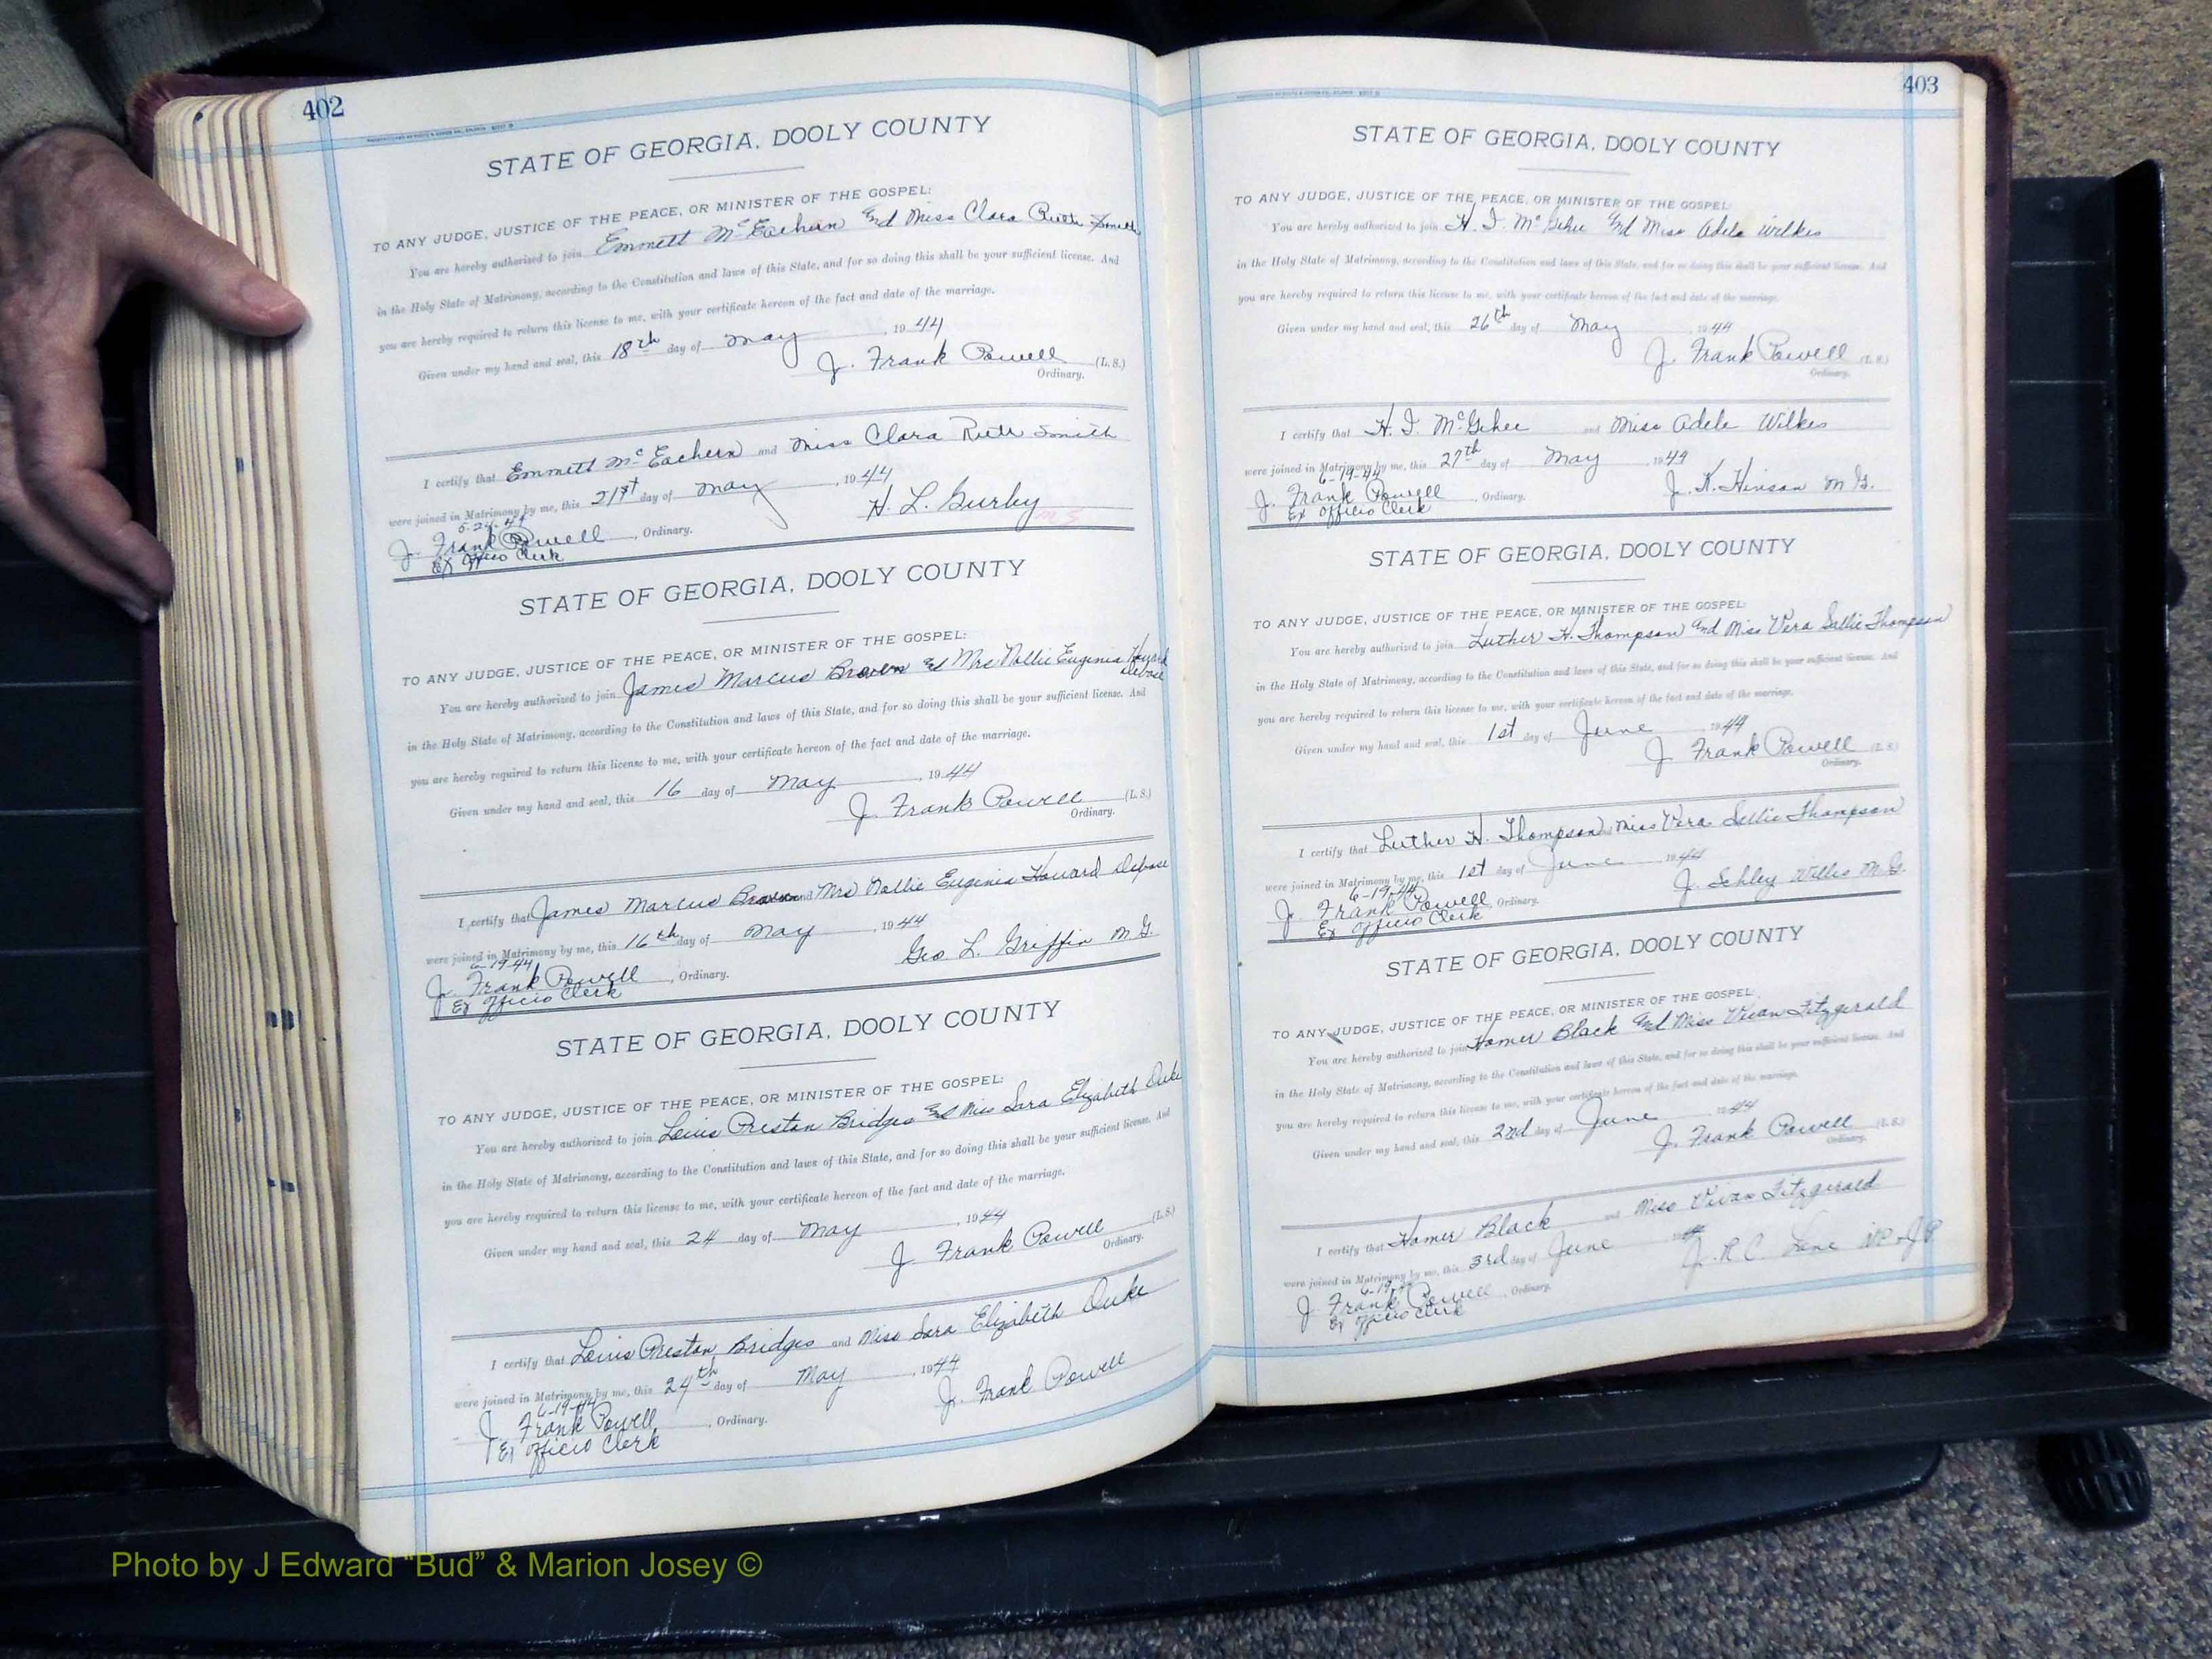 402
STATE OF GEORGIA, DOOLY COUNTY
TO ANY JUDGE, JUSTICE OF THE PEACE, OR MINISTER OF THE GOSPEL:
You are hereby authorized to join Emmett McEachern and Miss Clara Ruth Smith
in the Holy State of Matrimony, according to the Constitution and laws of this State, and for so doing this shall be your sufficient license. And
you are hereby required to return this license to me, with your certificate hereon of the fact and date of the marriage.
Given under my hand and seal, this 18th day of May, 1944
J. Frank Powell (L. S.)
Ordinary.
I certify that Emmett McEachern and Miss Clara Ruth Smith
were joined in Matrimony by me, this 21st day of May, 1944
5-24-44 H. L. Gurley
J. Frank Powell, Ordinary.
Ex Officio Clerk
STATE OF GEORGIA, DOOLY COUNTY
TO ANY JUDGE, JUSTICE OF THE PEACE, OR MINISTER OF THE GOSPEL:
You are hereby authorized to join James Marcus Brown and Mrs Nollie Eugenia Howard
in the Holy State of Matrimony, according to the Constitution and laws of this State, and for so doing this shall be your sufficient license. And
you are hereby required to return this license to me, with your certificate hereon of the fact and date of the marriage.
Given under my hand and seal, this 16 day of May, 1944
J. Frank Powell (L. S.)
Ordinary.
I certify that James Marcus Brown and Mrs Nollie Eugenia Howard
were joined in Matrimony by me, this 16th day of May, 1944
6-19-44 Geo L. Griffin M.G.
J. Frank Powell, Ordinary.
Ex Officio Clerk
STATE OF GEORGIA, DOOLY COUNTY
TO ANY JUDGE, JUSTICE OF THE PEACE, OR MINISTER OF THE GOSPEL:
You are hereby authorized to join Louis Preston Bridges and Miss Sara Elizabeth Duke
in the Holy State of Matrimony, according to the Constitution and laws of this State, and for so doing this shall be your sufficient license. And
you are hereby required to return this license to me, with your certificate hereon of the fact and date of the marriage.
Given under my hand and seal, this 24 day of May, 1944
J. Frank Powell (L. S.)
Ordinary.
I certify that Louis Preston Bridges and Miss Sara Elizabeth Duke
were joined in Matrimony by me, this 24th day of May, 1944
6-19-44 J. Frank Powell
J. Frank Powell, Ordinary.
Ex Officio Clerk
403
STATE OF GEORGIA, DOOLY COUNTY
TO ANY JUDGE, JUSTICE OF THE PEACE, OR MINISTER OF THE GOSPEL:
You are hereby authorized to join H. I. McGehee and Miss Adele Wilkes
in the Holy State of Matrimony, according to the Constitution and laws of this State, and for so doing this shall be your sufficient license. And
you are hereby required to return this license to me, with your certificate hereon of the fact and date of the marriage.
Given under my hand and seal, this 26th day of May 1944
J. Frank Powell (L. S.)
Ordinary.
I certify that H. I. McGehee and Miss Adele Wilkes
were joined in Matrimony by me, this 27th day of May, 1944
6-19-44 J. K. Hinson M G.
J. Frank Powell, Ordinary.
Ex Officio Clerk
STATE OF GEORGIA, DOOLY COUNTY
TO ANY JUDGE, JUSTICE OF THE PEACE, OR MINISTER OF THE GOSPEL:
You are hereby authorized to join Luther H. Thompson and Miss Vera Sallie Thompson
in the Holy State of Matrimony, according to the Constitution and laws of this State, and for so doing this shall be your sufficient license. And
you are hereby required to return this license to me, with your certificate hereon of the fact and date of the marriage.
Given under my hand and seal, this 1st day of June, 1944
J. Frank Powell (L. S.)
Ordinary.
I certify that Luther H. Thompson Miss Vera Sallie Thompson
were joined in Matrimony by me, this 1st day of June, 1944
6-19-44 J. Schley Willis M.G.
J. Frank Powell, Ordinary.
Ex Officio Clerk
STATE OF GEORGIA, DOOLY COUNTY
TO ANY JUDGE, JUSTICE OF THE PEACE, OR MINISTER OF THE GOSPEL:
You are hereby authorized to join Homer Black and Miss Vivan Fitzgerald
in the Holy State of Matrimony, according to the Constitution and laws of this State, and for so doing this shall be your sufficient license. And
you are hereby required to return this license to me, with your certificate hereon of the fact and date of the marriage.
Given under my hand and seal, this 2nd day of June 1944
J. Frank Powell (L. S.)
Ordinary.
I certify that Homer Black and Miss Vivan Fitzgerald
were joined in Matrimony by me, this 3rd day of June
J. R C Lane
J. Frank Powell, Ordinary.
Ex Officio Clerk
Photo by J Edward "Bud" & Marion Josey ©